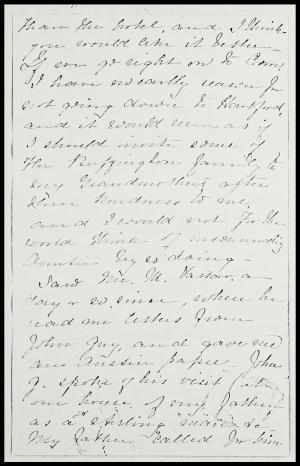 than the hotel, and I think
you would like it better -
If we go right on to Conn
I have no earthly reason for
not going down to Hartford,
and it would seem as if
I should invite some of
the Buffington family to
my Grandmothers after
their kindness to me,
and I would not for the
world think of
Auntie by so doing -
I saw Mr. M. Vassar a
day or so since, when he
read me letters from
John Guy, and gave me
an paper. John
G. spoke of his visit at
our house, of my father
as a "sterling
My father "called for him